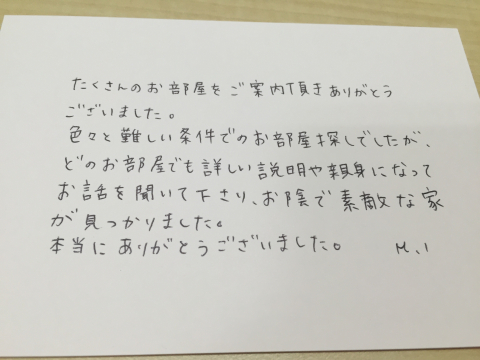 たくさんのお部屋をご案内頂きありがとう
ございました。
色々と難しい条件でのお部屋探しでしたが、
どのお部屋でも詳しい説明や親身になって
お話を聞いて下さり、お陰で素敵な家
が見つかりました。
本当にありがとうございました。 M.I